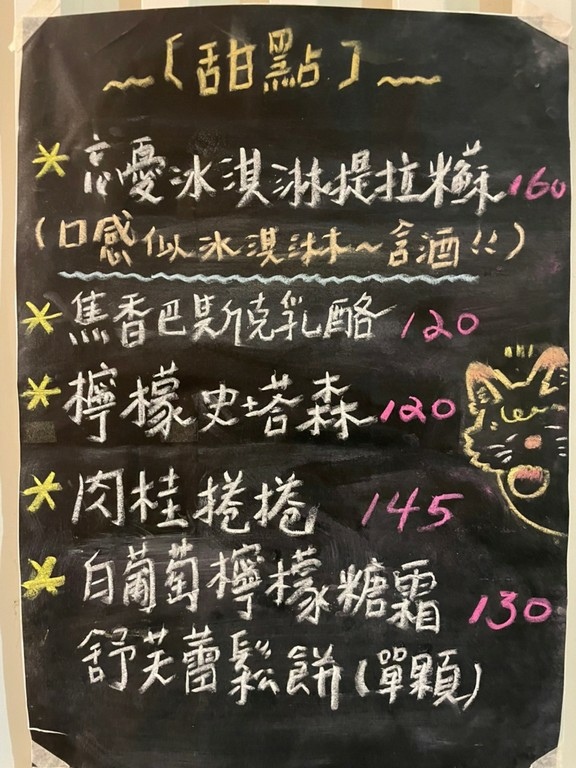 ~〔甜點〕~
* 忘憂冰淇淋提拉米蘇 160
(口感似冰淇淋~含酒!!)
* 焦香巴斯克乳酪 120
* 檸檬史塔森 120
* 肉桂捲捲 145
* 白葡萄檸檬糖霜 130
舒芙蕾鬆餅(單顆)